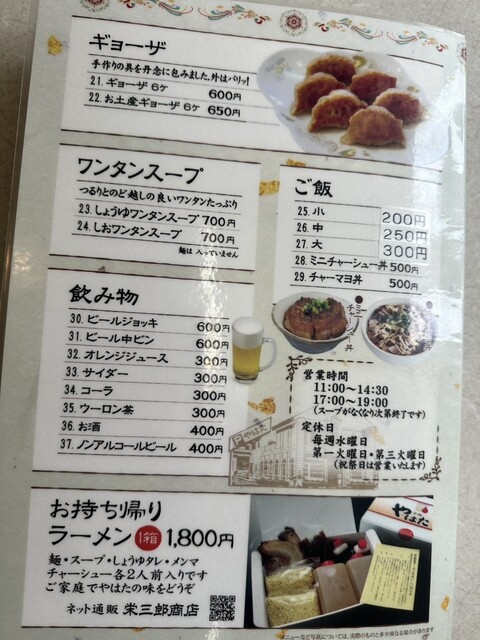 ギョーザ
手作りの具を丹念に包みました。外はパリッ!
21. ギョーザ 6ケ 600円
22. お土産ギョーザ 6ケ 650円
ワンタンスープ
つるりとのど越しの良いワンタンたっぷり
23. しょうゆワンタンスープ 700円
24. しおワンタンスープ 700円
麺は 入っていません
ご飯
25. 小 200円
26. 中 250円
27. 大 300円
28. ミニチャーシュー丼 500円
29. チャーマヨ丼 500円
飲み物
30. ビールジョッキ 600円
31. ビール中ビン 600円
32. オレンジジュース 300円
33. サイダー 300円
34. コーラ 300円
35. ウーロン茶 300円
36. お酒 400円
37. ノンアルコールビール 400円
チャーシュー丼
営業時間
11:00〜14:30
17:00〜19:00
(スープがなくなり次第終了です)
定休日
毎週水曜日
第一火曜日・第三火曜日
(祝祭日は営業いたします)
お持ち帰り
ラーメン 1箱 1,800円
麺・スープ・しょうゆタレ・メンマ
チャーシュー各2人前入りです
ご家庭でやはたの味をどうぞ
ネット通販 栄三郎商店
やはた
メニューなど写真については、実際のものと多少異なる場合があります